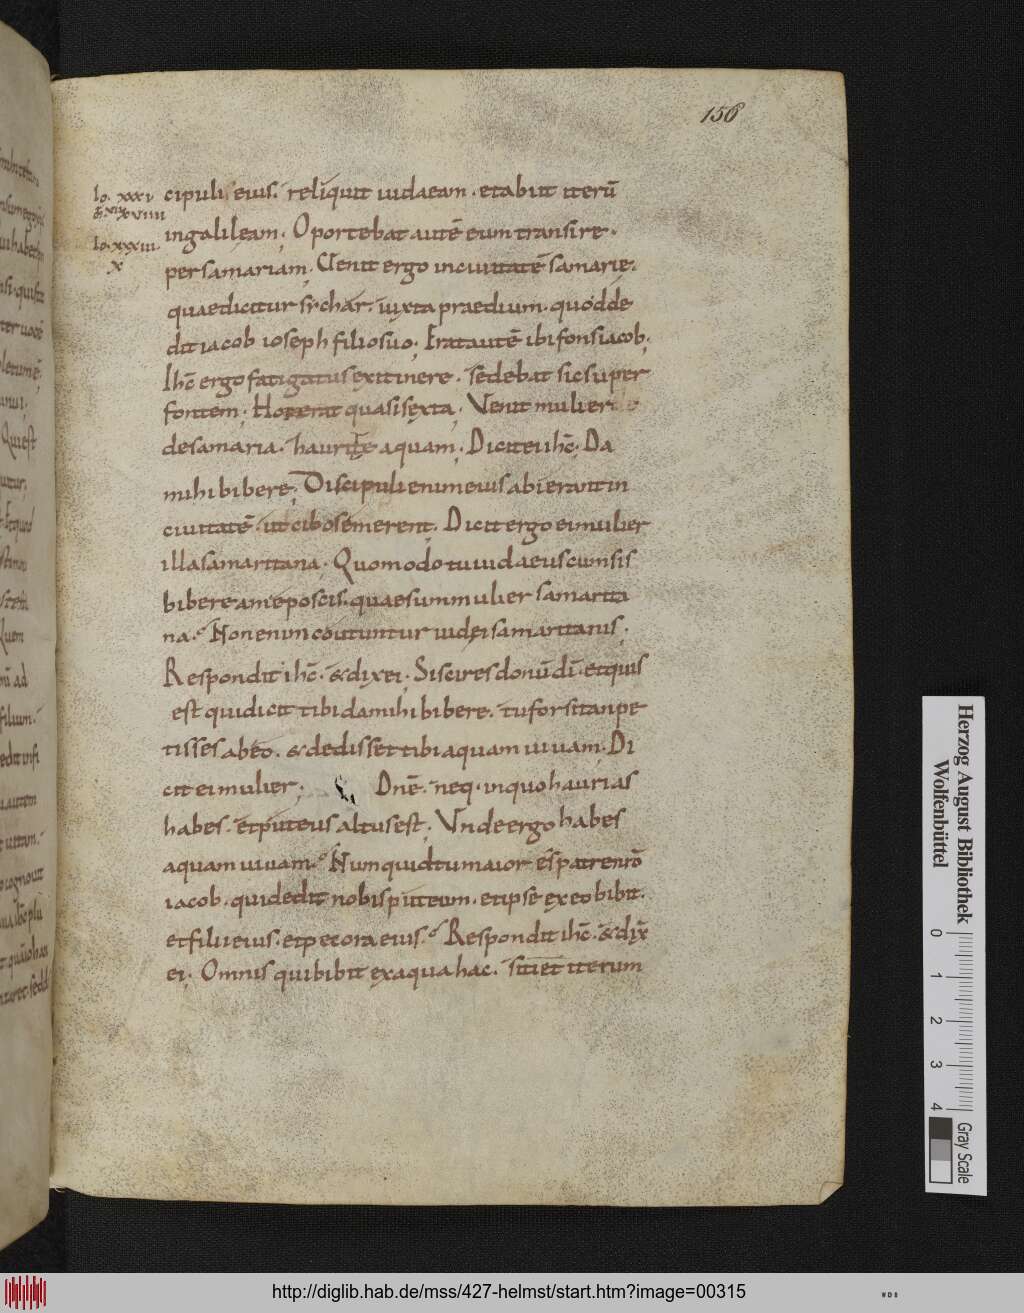 156
Io. xxxi
Io. xxxiii.
x
cipuli eius. reliquit iudaeam. et abiit iterū
in galileam; Oportebat autē eum transire.
per samariam; Uenit ergo in ciuitatē samarię.
quae dicitur sychar. iuxta praedium. quod de
dit iacob ioseph filio suo; Erat autē ibi fons iacob;
Ihc̄ ergo fatigatus ex itinere. sedebat sic super
fontem; Hora erat quasi sexta; Venit mulier
de samaria. haurire aquam; Dicit ei ihc̄; Da
mihi bibere; Discipuli enim eius abierant in
ciuitatē. ut cibos emerent; Dicit ergo ei mulier
illa samaritana; Quomodo tu iudaeus cum sis
bibere a me poscis. quae sum mulier samarita
na. Non enim coutuntur iudei samaritanis;
Respondit ihc̄. & dix ei; Si scires donū dī. et quis
est qui dicit tibi da mihi bibere. tu forsitan pe
tisses ab eo. & dedisset tibi aquam uiuam; Di
cit ei mulier; Dn̄e. neq. in quo haurias
habes. et puteus altus est; Vnde ergo habes
aquam uiuam. Numquid tu maior es patre nr̄o
iacob. qui dedit nobis puteum. et ipse ex eo bibit.
et filii eius. et pecora eius. Respondit ihc̄. & dix̄
ei; Omnis qui bibit ex aqua hac. sitiet iterum
Herzog August Bibliothek
Wolfenbüttel
0 1 2 3 4
Gray Scale
http://diglib.hab.de/mss/427-helmst/start.htm?image=00315